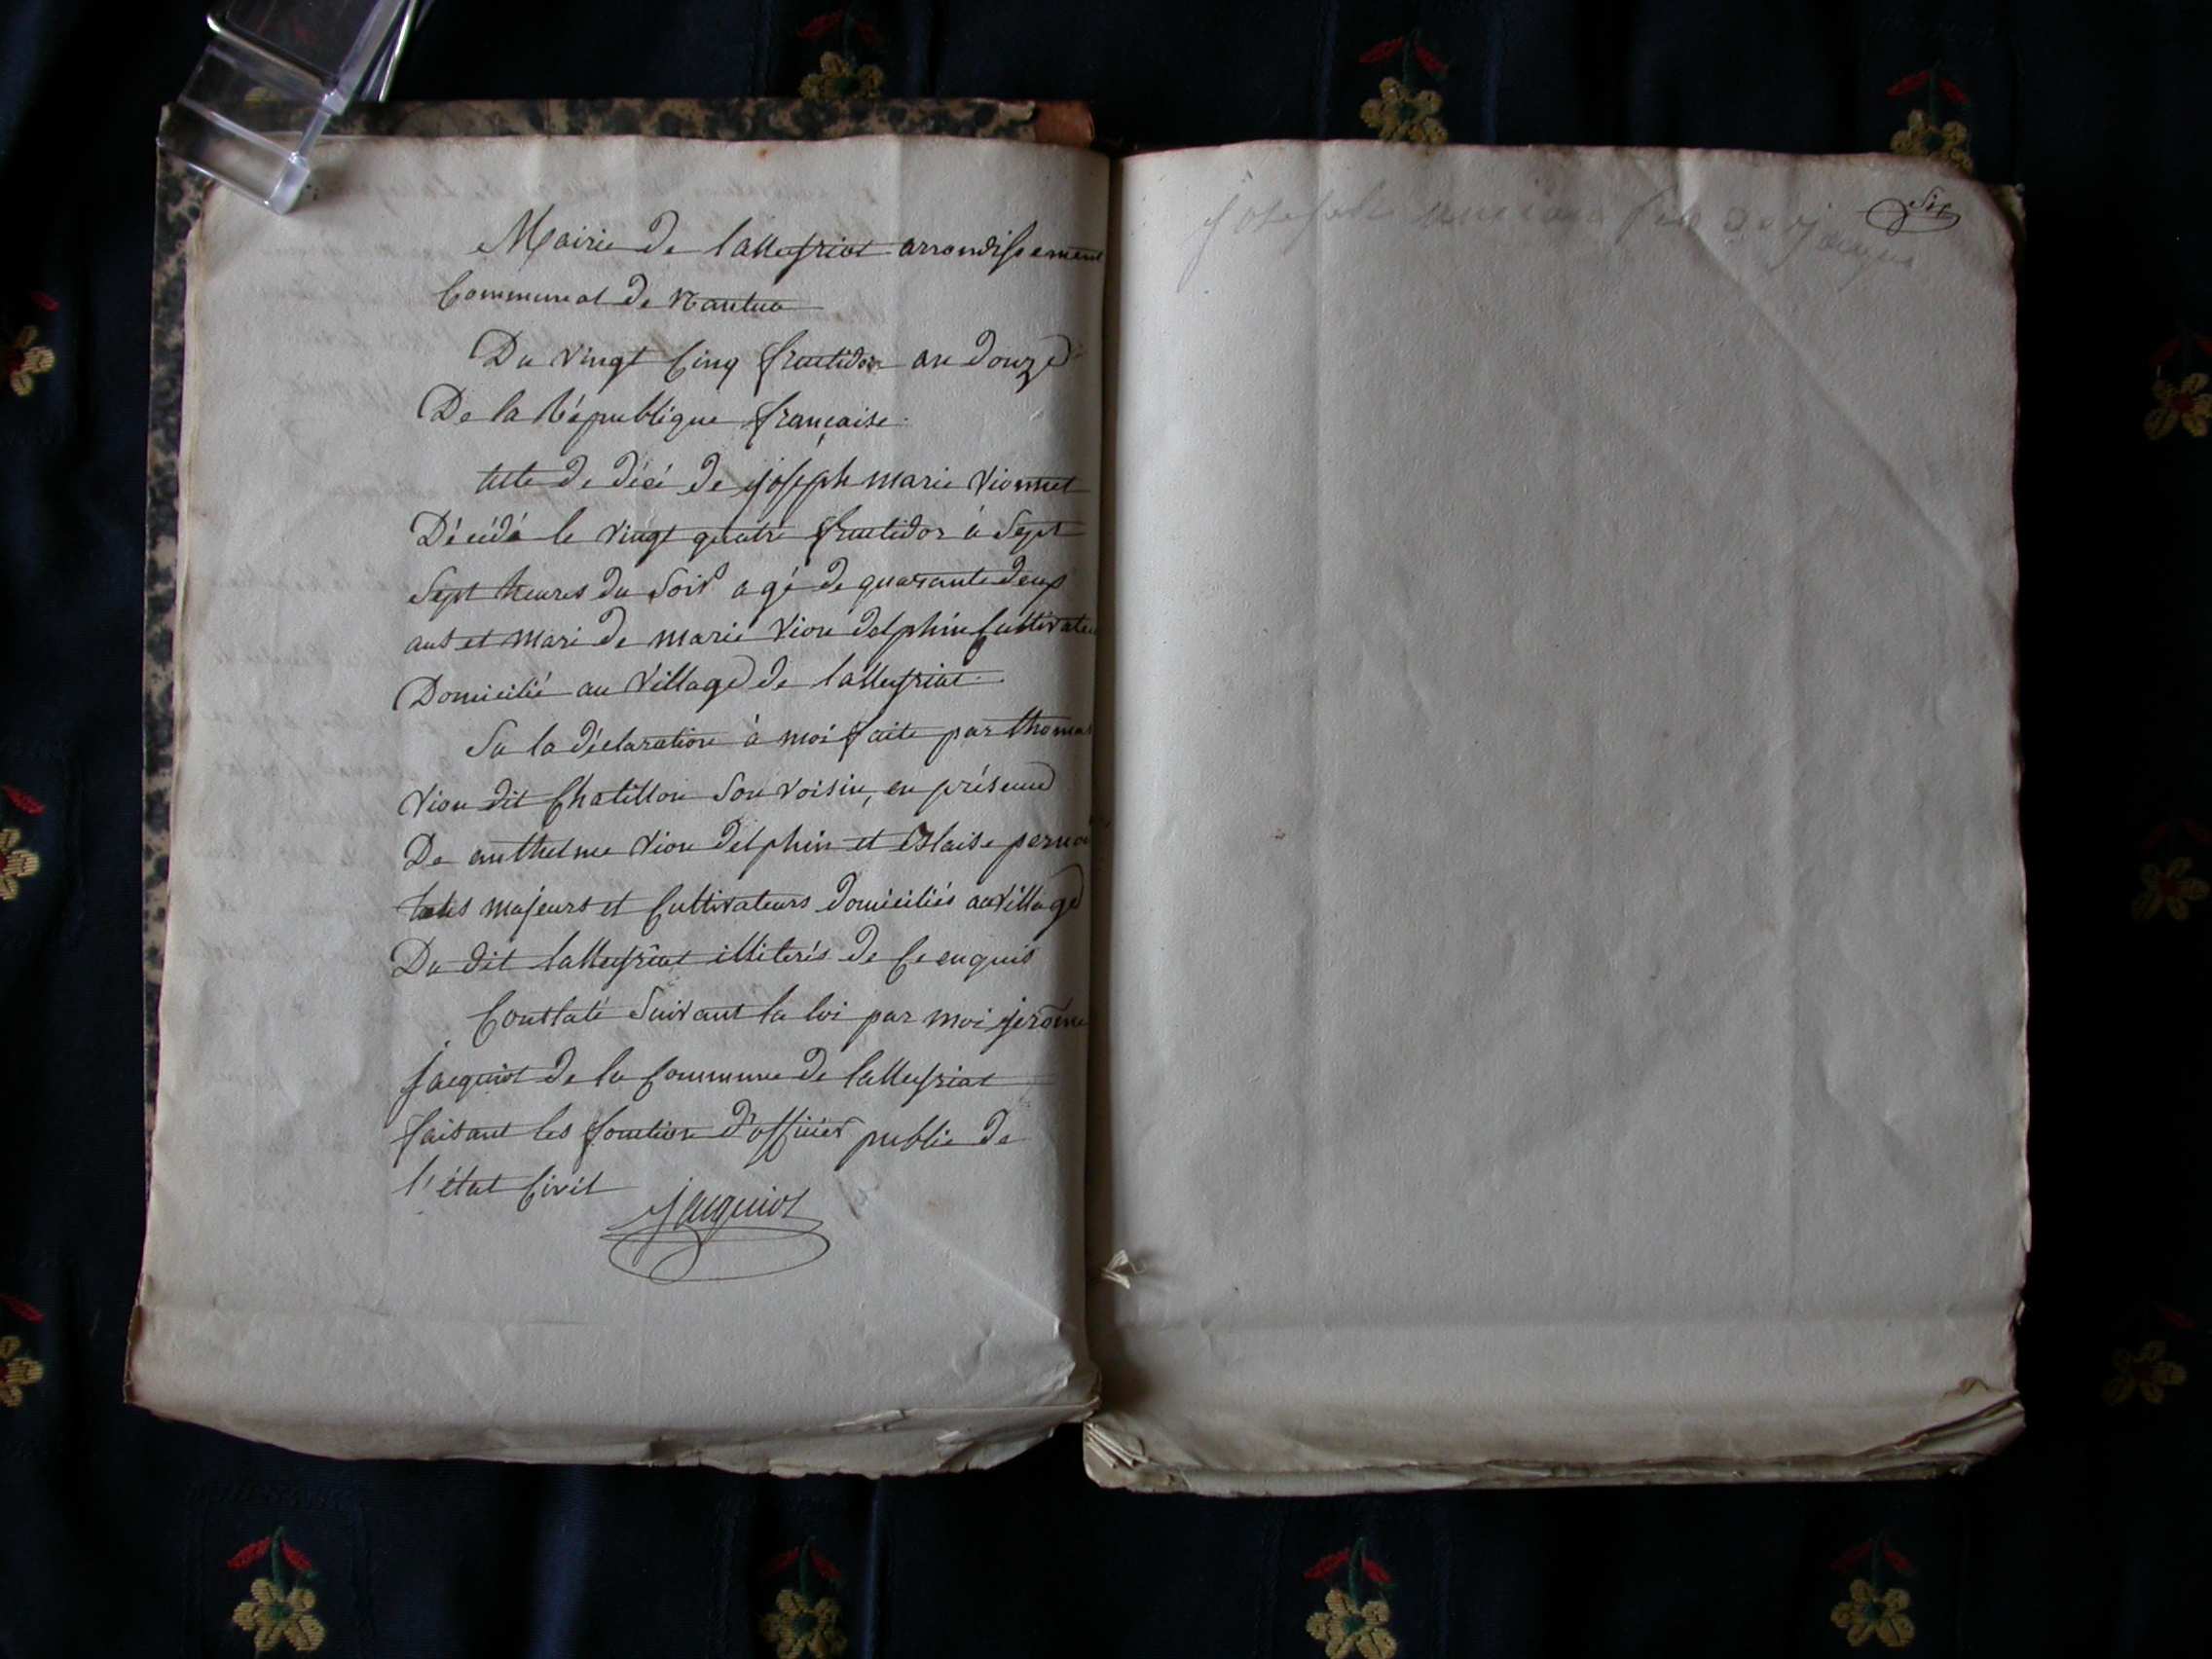 Mairie de lalleyriat arrondissement
Communal de Nantua
Du vingt Cinq fructidor an douze
De la République française.
acte de décé de joseph marie Vionnet
Décédé le vingt quatre fructidor à Sept
Sept heures du Soir agé de quarante deux
ans et mari de marie Vion delphin Cultivateu
Domicilié au Village de lalleyriat.
Su la déclaration à moi faite par thomas
Vion dit Chatillon Son voisin, en présence
De anthelme Vion delphin et Blaise
touts majeurs et Cultivateurs domiciliés au Village
Du dit lalleyriat illiterés de Ce enquis
Constaté Suivant la loi par moi jerome
jacquiot de la Commune de lalleyriat
faisant les fonction d'officier public de
l'état Civil
jacquiot
Six
joseph